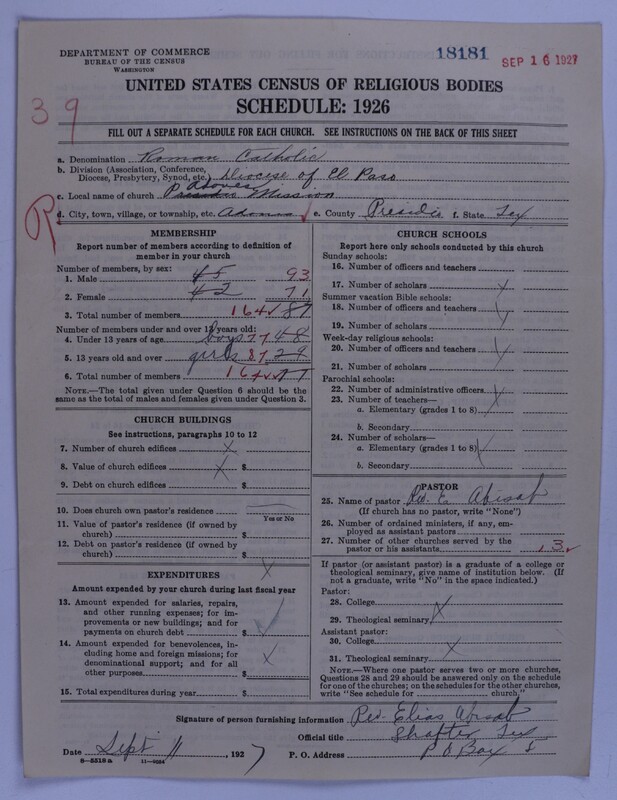 DEPARTMENT OF COMMERCE
BUREAU OF THE CENSUS
WASHINGTON
18181
SEP 16 1927
UNITED STATES CENSUS OF RELIGIOUS BODIES
SCHEDULE: 1926
39
FILL OUT A SEPARATE SCHEDULE FOR EACH CHURCH. SEE INSTRUCTIONS ON THE BACK OF THIS SHEET
a. Denomination Roman Catholic
b. Division (Association, Conference,
Diocese, Presbytery, Synod, etc.) Diocese of El Paso
c. Local name of church Mission
R
d. City, town, village, or township, etc. e. County Presidio f. State Tex
MEMBERSHIP
Report number of members according to definition of
member in your church
Number of members, by sex:
1. Male 45 93
2. Female 42 71
3. Total number of members 164 87
Number of members under and over 13 years old:
4. Under 13 years of age boys 77 48
5. 13 years old and over girls 87 29
6. Total number of members 164 77
NOTE.—The total given under Question 6 should be
the same as the total of males and females given under Question 3.
CHURCH BUILDINGS
See instructions, paragraphs 10 to 12
7. Number of church edifices x
8. Value of church edifices x $
9. Debt on church edifices $
10. Does church own pastor's residence
Yes or No
11. Value of pastor's residence (if owned by
church) $
12. Debt on pastor's residence (if owned by
church) $
x
EXPENDITURES
Amount expended by your church during last fiscal year
13. Amount expended for salaries, repairs,
and other running expenses; for im-
provements or new buildings; and for
payments on church debt $
14. Amount expended for benevolences, in-
cluding home and foreign missions; for
denominational support; and for all
other purposes $ x
15. Total expenditures during year $
CHURCH SCHOOLS
Report here only schools conducted by this church
Sunday schools:
16. Number of officers and teachers
17. Number of scholars
Summer vacation Bible schools:
18. Number of officers and teachers
19. Number of scholars
Week-day religious schools:
20. Number of officers and teachers
21. Number of scholars
Parochial schools:
22. Number of administrative officers
23. Number of teachers—
a. Elementary (grades 1 to 8)
b. Secondary
24. Number of scholars—
a. Elementary (grades 1 to 8)
b. Secondary
PASTOR
25. Name of pastor Rev. E. Abisab
(If church has no pastor, write "None")
26. Number of ordained ministers, if any, em-
ployed as assistant pastors
27. Number of other churches served by the
pastor or his assistants 3
If pastor (or assistant pastor) is a graduate of a college or
theological seminary, give name of institution below. (If
not a graduate, write "No" in the space indicated.)
Pastor:
28. College x
29. Theological seminary
Assistant pastor:
30. College x
31. Theological seminary
NOTE.—Where one pastor serves two or more churches,
Questions 28 and 29 should be answered only on the schedule
for one of the churches; on the schedules for the other churches,
write "See schedule for church."
Signature of person furnishing information Rev. Elias Abisab
Official title Shafter Tex
Date Sept 11, 1927 P. O. Address P O Box
8-5518a 11-9024